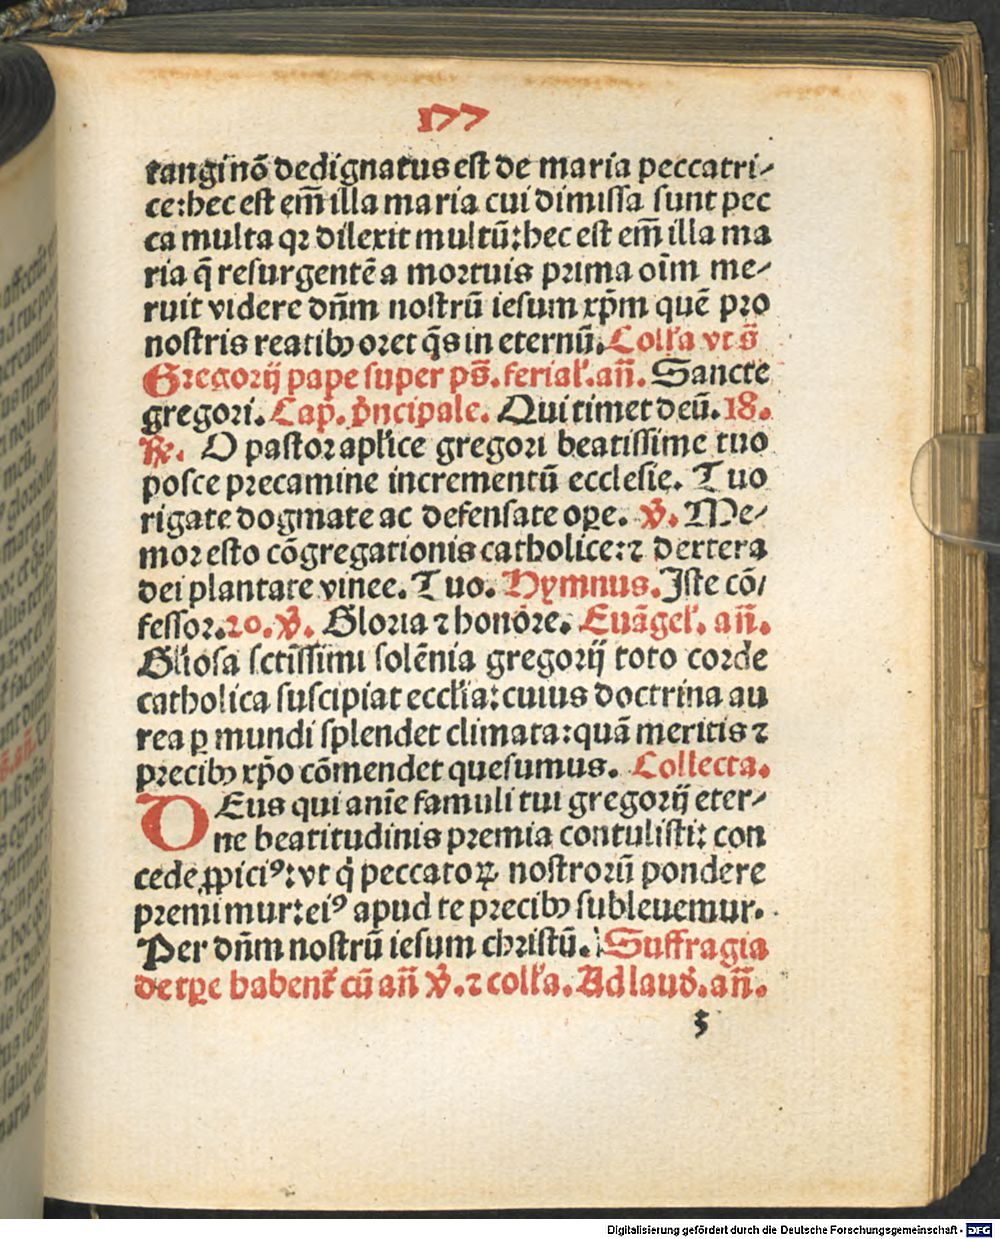 177
tangi nō dedignatus est de maria peccatri⸗
ce: hec est em̄ illa maria cui dimissa sunt pec
ca multa qꝛ dilexit multū: hec est em̄ illa ma
ria q̄ resurgentē a mortuis prima oīm me⸗
ruit videre dn̄m nostrū iesum xp̄m quē pro
nostris reatibꝰ oret q̄s in eternū. Coll'a vt s̄
Gregorij pape super ps̄. ferial'. an̄. Sancte
gregori. Cap̄. p̄ncipale. Qui timet deū. 18.
R̄. O pastor apl'ice gregori beatissime tuo
posce precamine incrementū ecclesie. Tuo
rigate dogmate ac defensate oꝑe. v̄. Me⸗
mor esto cōgregationis catholice: ⁊ dextera
dei plantate vinee. Tuo. Hymnus. Iste cō⸗
fessor. 20. v̄. Gloria ⁊ honore. Euāgel'. an̄.
Gl'iosa sctīssimi solēnia gregorij toto corde
catholica suscipiat eccl'ia: cuius doctrina au
rea ꝑ mundi splendet climata: quā meritis ⁊
precibꝰ xp̄o cōmendet quesumus. Collecta.
DEus qui anīe famuli tui gregorij eter⸗
ne beatitudinis premia contulisti: con
cede ꝓpiciꝰ: vt q̇ peccatoꝝ nostrorū pondere
premimur: eiꝰ apud te precibꝰ subleuemur.
Per dn̄m nostrū iesum christū. Suffragia
de tꝑe habent' cū an̄ v̄. ⁊ coll'a. Ad laud̄. an̄.
3
Digitalisierung gefördert durch die Deutsche Forschungsgemeinschaft - DFG